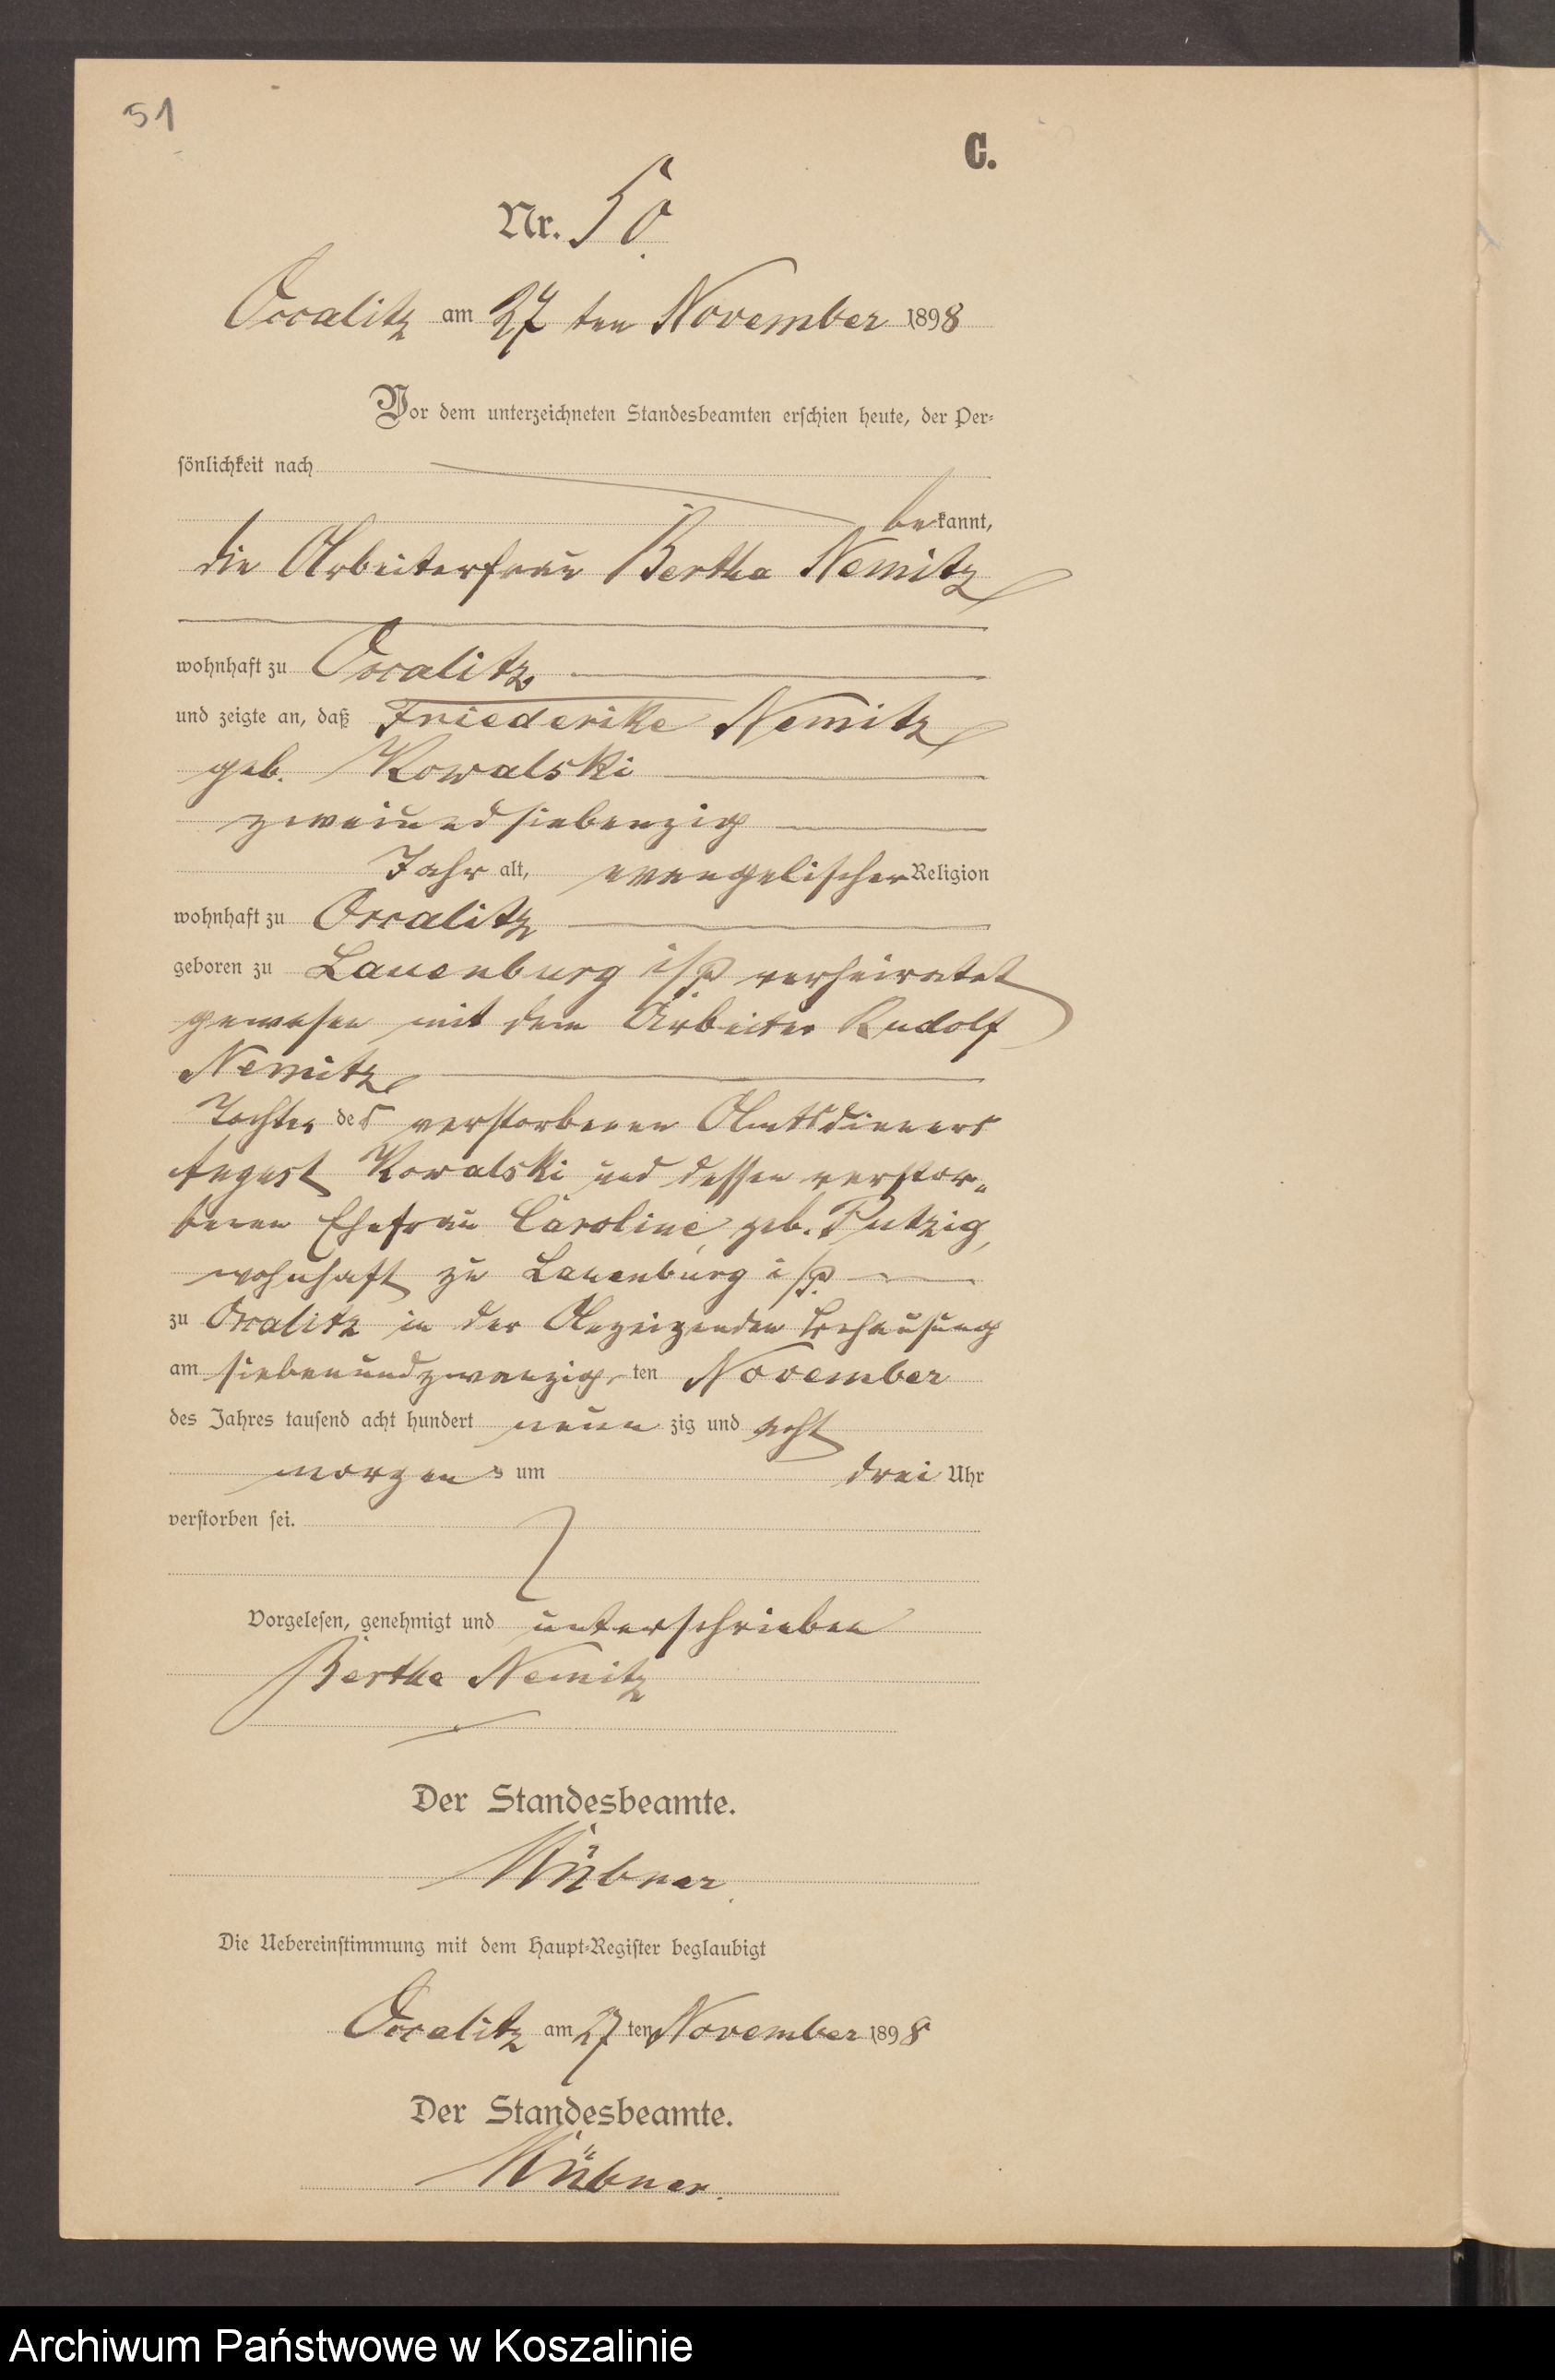 51
C.
Nr. 50.
Occalitz am 27 ten November 1898
Vor dem unterzeichneten Standesbeamten erschien heute, der Per-
sönlichkeit nach
bekannt,
die Arbeiterfrau Bertha Nemitz
wohnhaft zu Occalitz
und zeigte an, daß Friederike Nemitz
geb. Kowalski
zweiundsiebenzig
Jahr alt, evangelischer Religion
wohnhaft zu Occalitz
geboren zu Lauenburg i/P. verheiratet
gewesen mit dem Arbeiter Rudolf
Nemitz
Tochter des verstorbenen Amtsdieners
August Kowalski und dessen verstor-
benen Ehefrau Caroline, geb. Putzig,
wohnhaft zu Lauenburg i/P.
zu Occalitz in der Anzeigenden Behausung
am siebenundzwanzig ten November
des Jahres tausend acht hundert neun zig und acht
morgens um drei Uhr
verstorben sei.
Vorgelesen, genehmigt und unterschrieben
Bertha Nemitz
Der Standesbeamte.
Die Uebereinstimmung mit dem Haupt-Register beglaubigt
Occalitz am 27 ten November 1898
Der Standesbeamte.
Archiwum Państwowe w Koszalinie